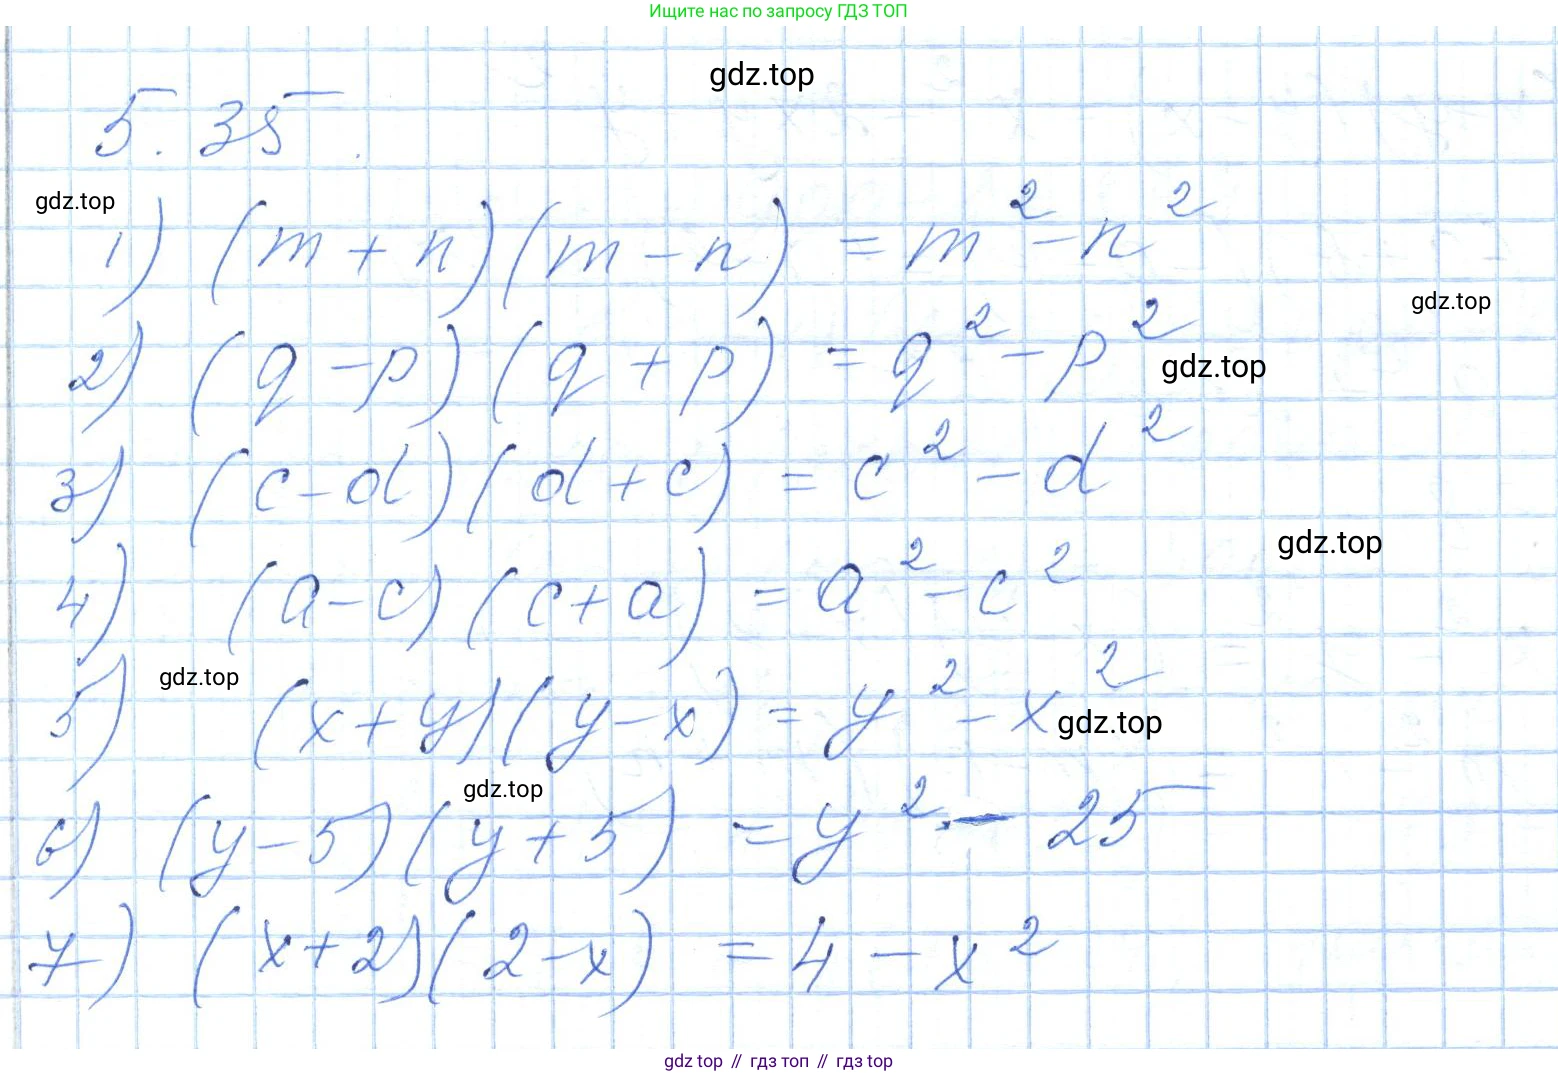 Ищите нас по запросу ГДЗ ТОП
gdz.top
5.35.
gdz.top
1) (m + n)(m - n) = m² - n²
gdz.top
2) (q - p)(q + p) = q² - p²
gdz.top
3) (c - d)(d + c) = c² - d²
gdz.top
4) (a - c)(c + a) = a² - c²
gdz.top
5) (x + y)(y - x) = y² - x²
gdz.top
gdz.top
6) (y - 5)(y + 5) = y² - 25
7) (x + 2)(2 - x) = 4 - x²
gdz top // гдз топ // гдз top